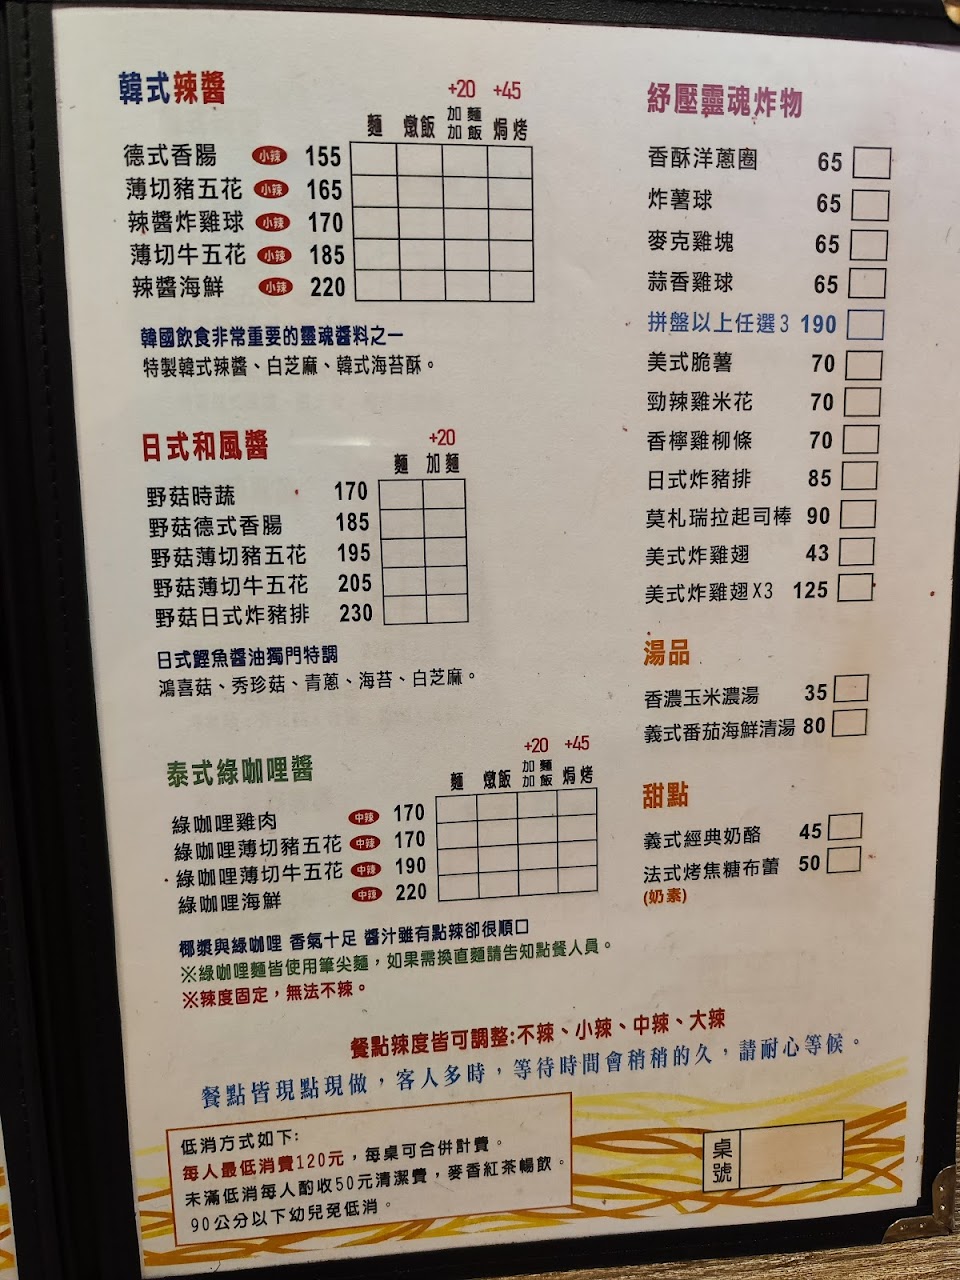 韓式辣醬
+20 +45
麵 燉飯 加麵加飯 焗烤
德式香腸 小辣 155
薄切豬五花 小辣 165
辣醬炸雞球 小辣 170
薄切牛五花 小辣 185
辣醬海鮮 小辣 220
韓國飲食非常重要的靈魂醬料之一
特製韓式辣醬、白芝麻、韓式海苔酥。
日式和風醬
+20
麵 加麵
野菇時蔬 170
野菇德式香腸 185
野菇薄切豬五花 195
野菇薄切牛五花 205
野菇日式炸豬排 230
日式鰹魚醬油獨門特調
鴻喜菇、秀珍菇、青蔥、海苔、白芝麻。
泰式綠咖哩醬
+20 +45
麵 燉飯 加麵加飯 焗烤
綠咖哩雞肉 中辣 170
綠咖哩薄切豬五花 中辣 170
綠咖哩薄切牛五花 中辣 190
綠咖哩海鮮 中辣 220
椰漿與綠咖哩 香氣十足 醬汁雖有點辣卻很順口
※綠咖哩麵皆使用筆尖麵，如果需換直麵請告知點餐人員。
※辣度固定，無法不辣。
紓壓靈魂炸物
香酥洋蔥圈 65
炸薯球 65
麥克雞塊 65
蒜香雞球 65
拼盤以上任選3 190
美式脆薯 70
勁辣雞米花 70
香檸雞柳條 70
日式炸豬排 85
莫札瑞拉起司棒 90
美式炸雞翅 43
美式炸雞翅X3 125
湯品
香濃玉米濃湯 35
義式番茄海鮮清湯 80
甜點
義式經典奶酪 45
法式烤焦糖布蕾 50
(奶素)
餐點辣度皆可調整:不辣、小辣、中辣、大辣
餐點皆現點現做，客人多時，等待時間會稍稍的久，請耐心等候。
低消方式如下:
每人最低消費120元，每桌可合併計費。
未滿低消每人酌收50元清潔費，麥香紅茶暢飲。
90公分以下幼兒免低消。
桌號